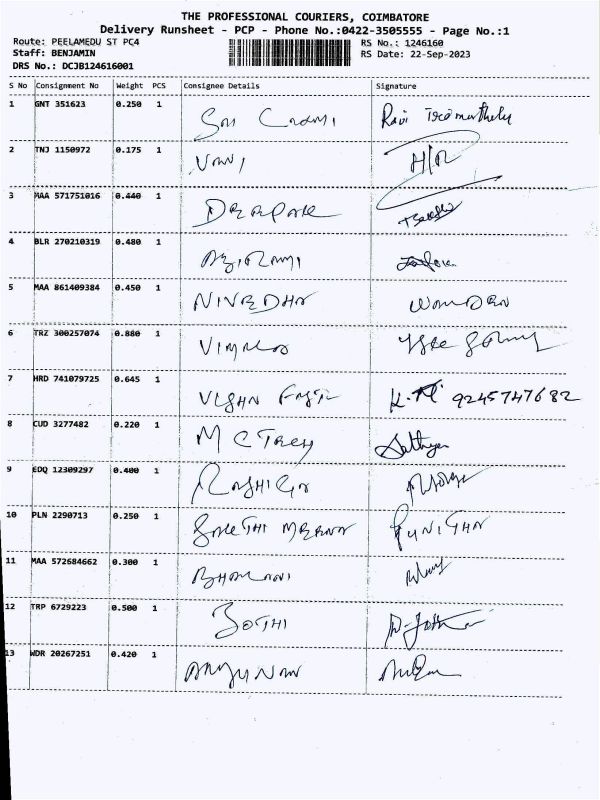 THE PROFESSIONAL COURIERS, COIMBATORE
Delivery Runsheet - PCP - Phone No.:0422-3505555 - Page No.:1
Route: PEELAMEDU ST PC4 RS No.: 1246160
Staff: BENJAMIN RS Date: 22-Sep-2023
DRS No.: DCJB124616001
S No Consignment No Weight PCS Consignee Details Signature
1 GNT 351623 0.250 1 Ravi
2 TNJ 1150972 0.175 1 Vani
3 MAA 571751016 0.440 1 DEEPAK
4 BLR 270210319 0.480 1 ABIRAMI
5 MAA 861409384 0.450 1 NIVEDHA
6 TRZ 300257074 0.880 1 VIMALA
7 HRD 741079725 0.645 1 9245747682
8 CUD 3277482 0.220 1 Sathya
9 EDQ 12309297 0.400 1 RASHIGA
10 PLN 2290713 0.250 1 PUNITHA
11 MAA 572684662 0.300 1 BHAVANI
12 TRP 6729223 0.500 1 JOTHI
13 WDR 20267251 0.420 1